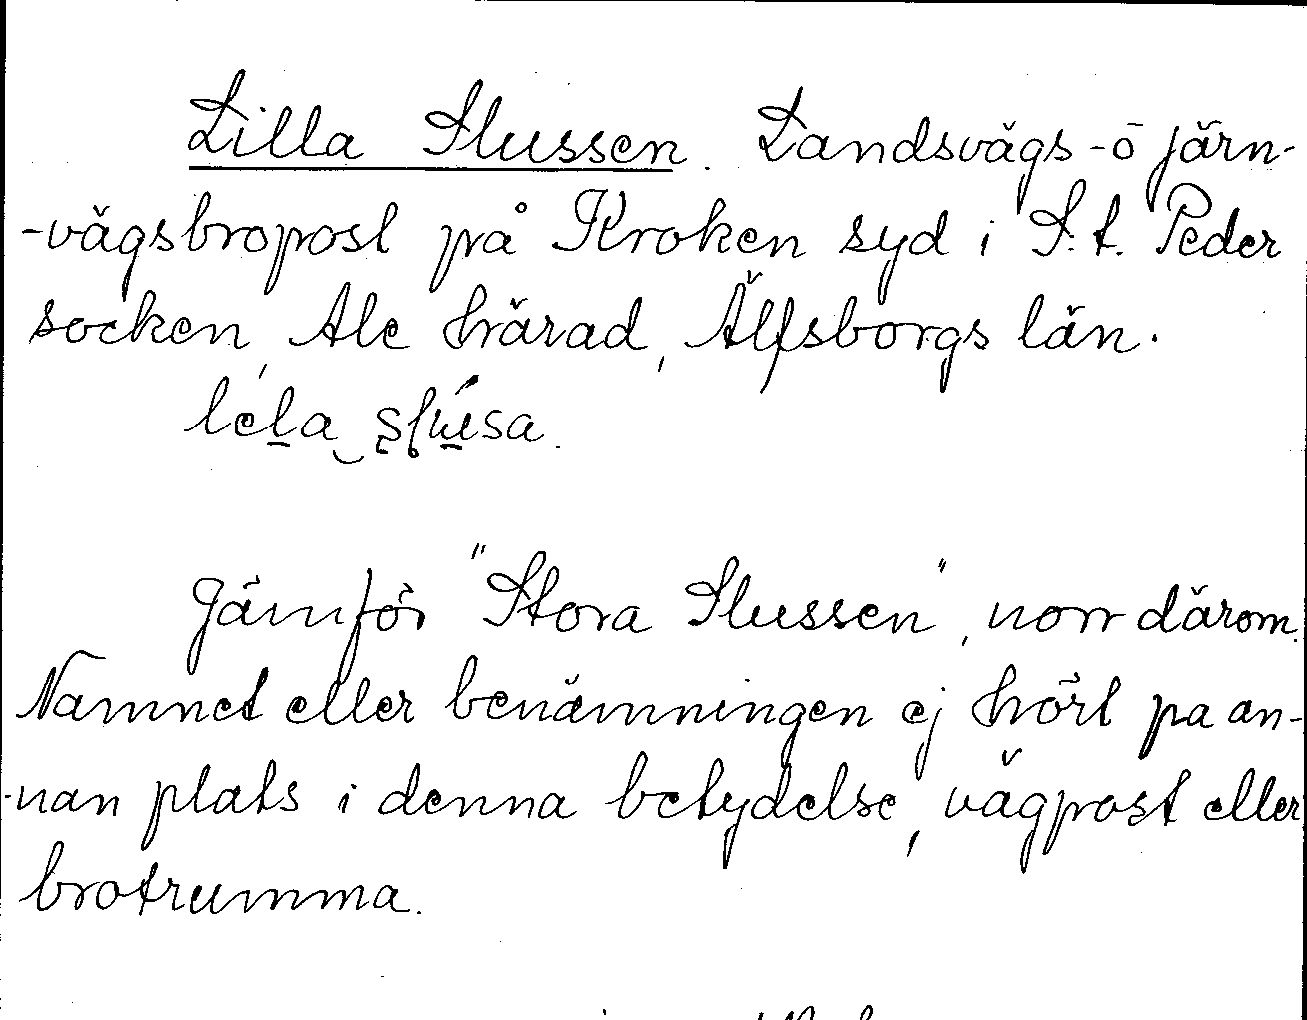 Lilla Slussen. Landsvägs-ō järn-
-vägsbropost på Kroken syd i S:t. Peder
socken, Ale härad, Älfsborgs län.
Jämför "Stora Slussen", norr därom.
Namnet eller benämningen ej hört pa an-
-nan plats i denna betydelse, vägpost eller
brotrumma.